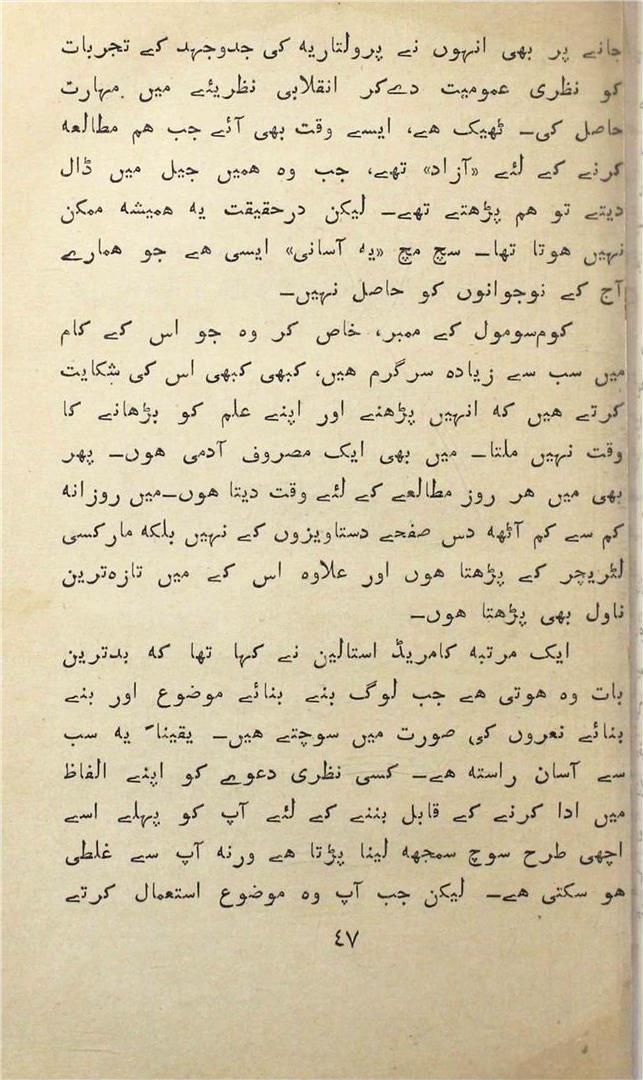 جانے پر بھی انہوں نے پرولتاریہ کی جدوجہد کے تجربات
کو نظری عمومیت دےکر انقلابی نظریئے میں مہارت
حاصل کی۔ ٹھیک ھے، ایسے وقت بھی آئے جب ھم مطالعہ
کرنے کے لئے «آزاد» تھے، جب وہ ھمیں جیل میں ڈال
دیتے تو ھم پڑھتے تھے۔ لیکن درحقیقت یہ ھمیشہ ممکن
نہیں ھوتا تھا۔ سچ مچ «یہ آسانی» ایسی ھے جو ھمارے
آج کے نوجوانوں کو حاصل نہیں۔
کوم‌سومول کے ممبر، خاص کر وہ جو اس کے کام
میں سب سے زیادہ سرگرم ھیں، کبھی کبھی اس کی شکایت
کرتے ھیں کہ انہیں پڑھنے اور اپنے علم کو بڑھانے کا
وقت نہیں ملتا۔ میں بھی ایک مصروف آدمی ھوں۔ پھر
بھی میں ھر روز مطالعے کے لئے وقت دیتا ھوں۔میں روزانہ
کم سے کم آٹھہ دس صفحے دستاویزوں کے نہیں بلکہ مارکسی
لٹریچر کے پڑھتا ھوں اور علاوہ اس کے میں تازہ‌ترین
ناول بھی پڑھتا ھوں۔
ایک مرتبہ کامریڈ استالین نے کہا تھا کہ بدترین
بات وہ ھوتی ھے جب لوگ بنے بنائے موضوع اور بنے
بنائے نعروں کی صورت میں سوچتے ھیں۔ یقیناً یہ سب
سے آسان راستہ ھے۔ کسی نظری دعوے کو اپنے الفاظ
میں ادا کرنے کے قابل بننے کے لئے آپ کو پہلے اسے
اچھی طرح سوچ سمجھہ لینا پڑتا ھے ورنہ آپ سے غلطی
ھو سکتی ھے۔ لیکن جب آپ وہ موضوع استعمال کرتے
٤٧